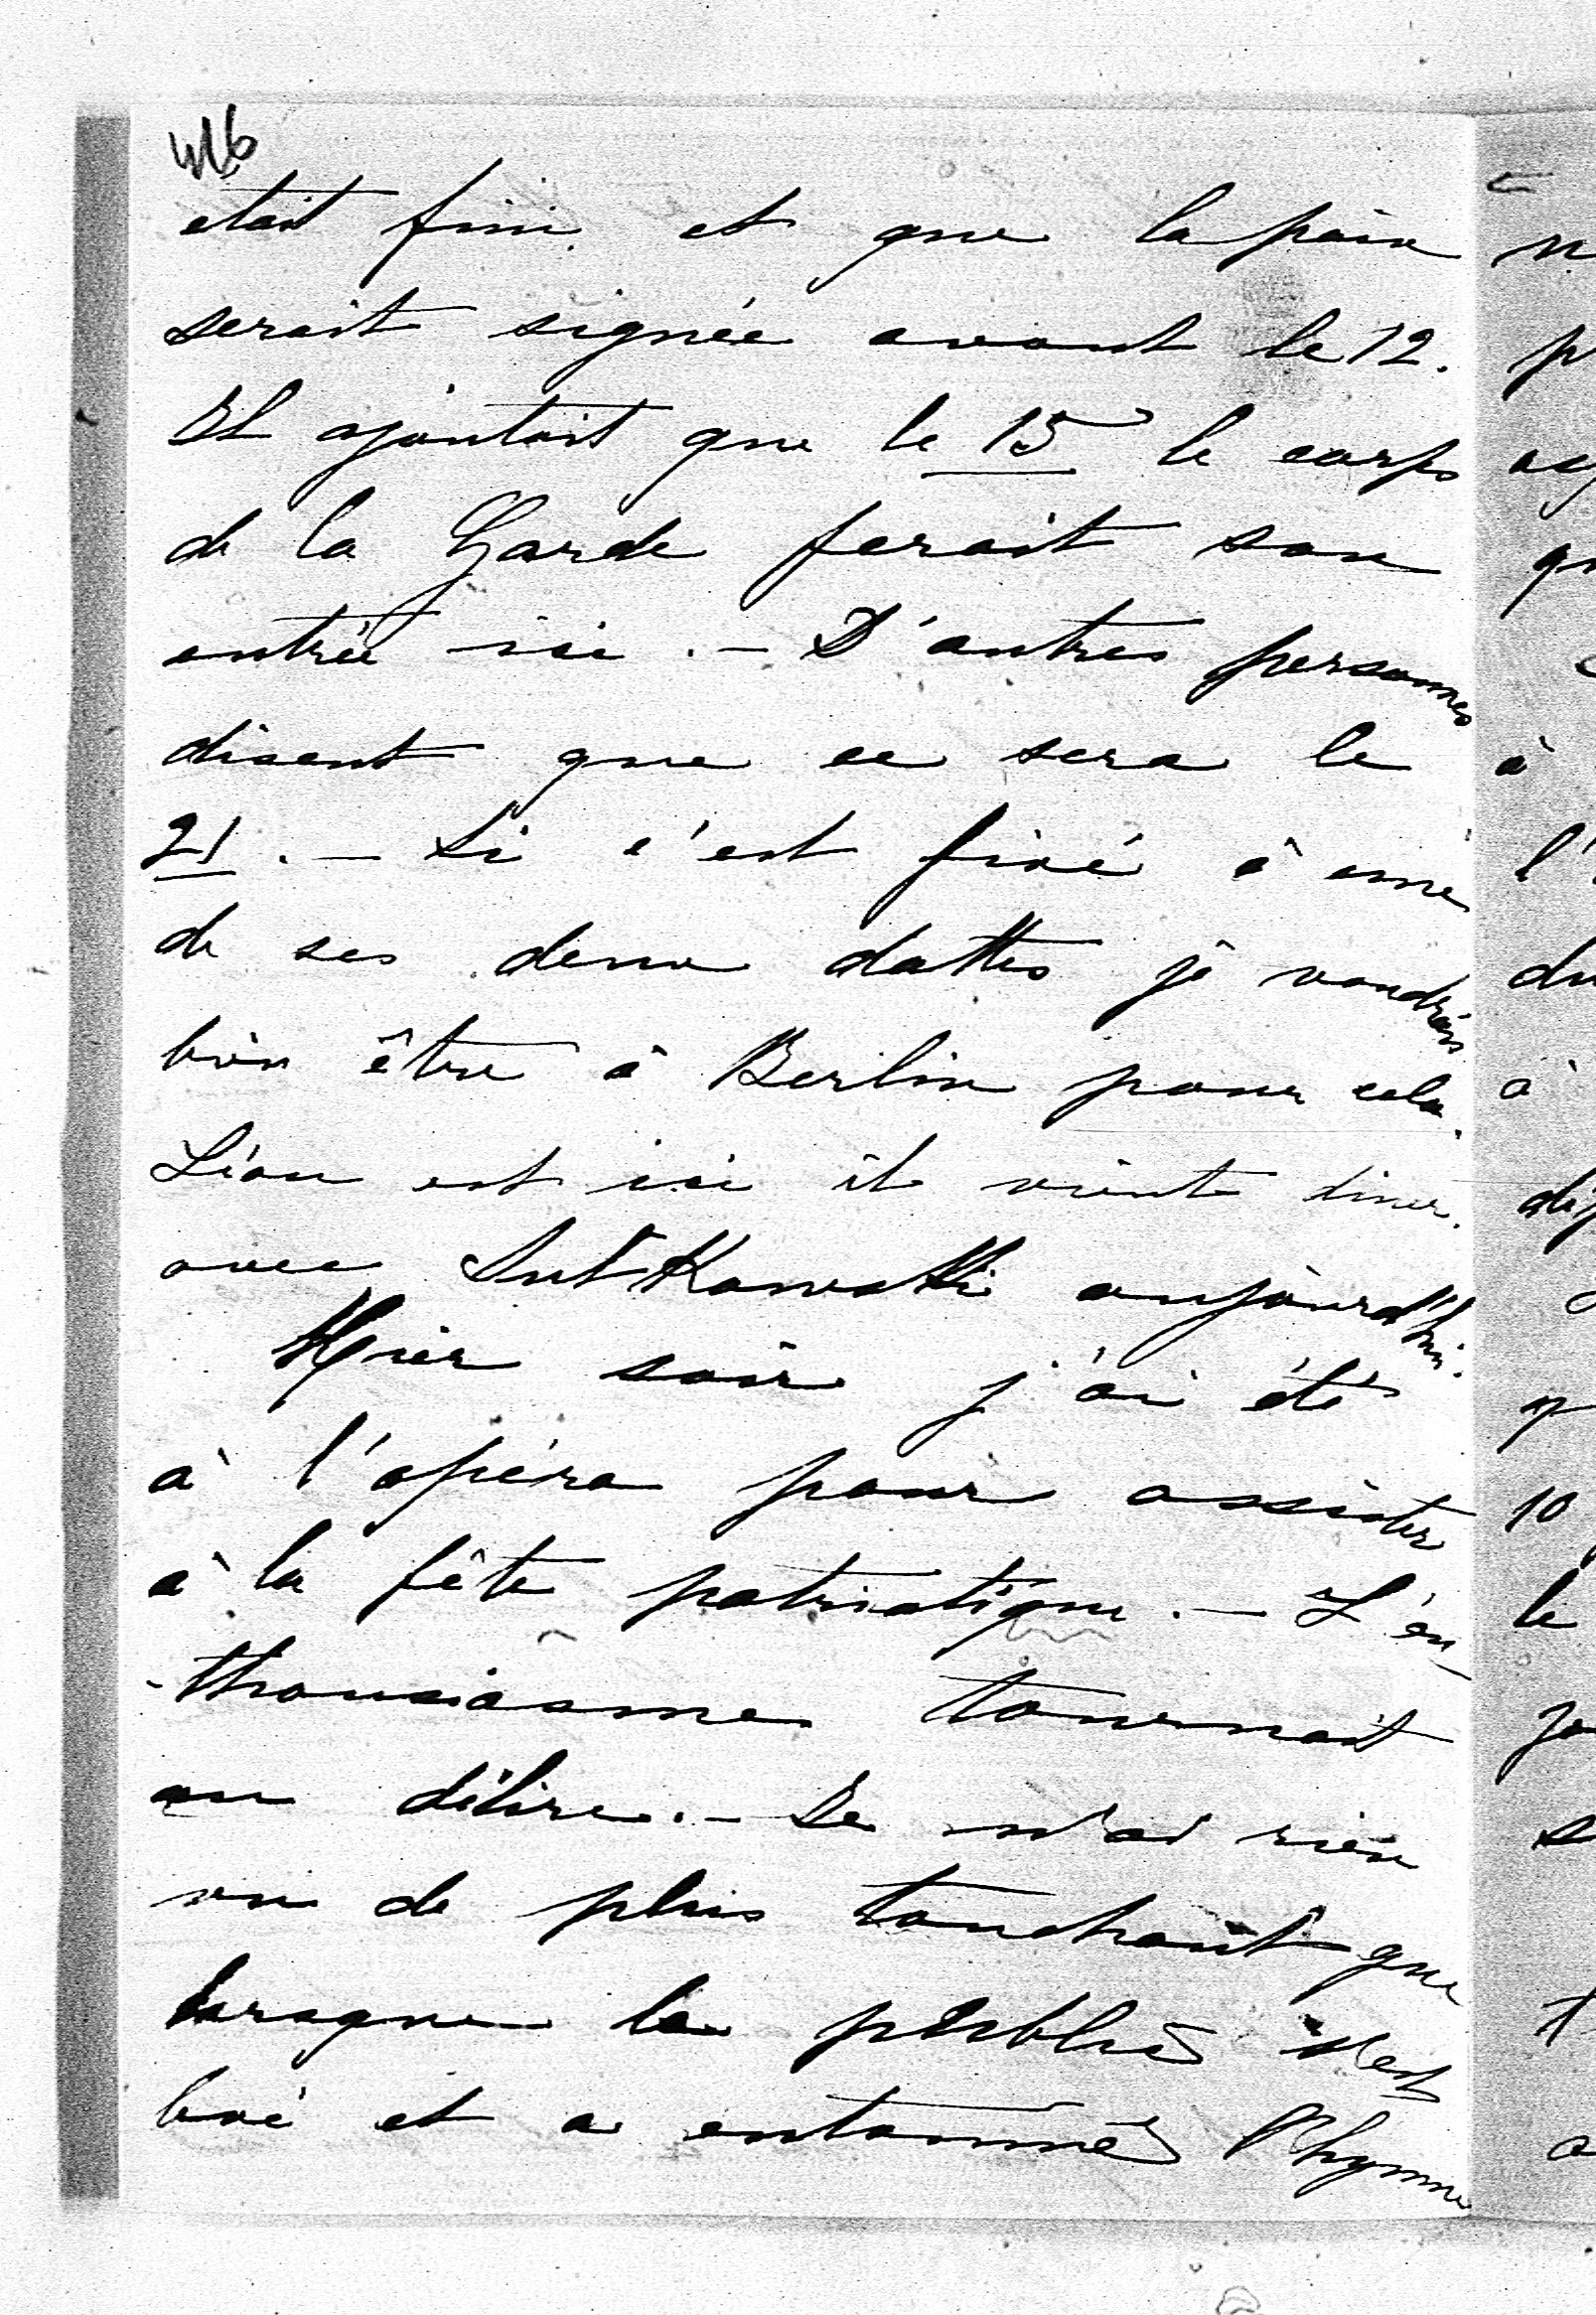 416
etait fini et que la paix
serait signée avant le 12.
Il ajoutait que le 15 le corps
de la Garde ferait son
entrée ici. — D'autres personnes
disent que ce sera le
21. — Si c'est fixé à une
de ses deux dattes je voudrais
bien être à Berlin pour cela.
Léon est ici il vient diner
avec aujourd'hui.
Hier soir j'ai été
à l'opéra pour assister
à la fête patriotique. — L'en-
-thousiasme tournait
au délire. — Je n'ai rien
vu de plus touchant que
lorsque le public s'est
levé et a entonné l'hymne